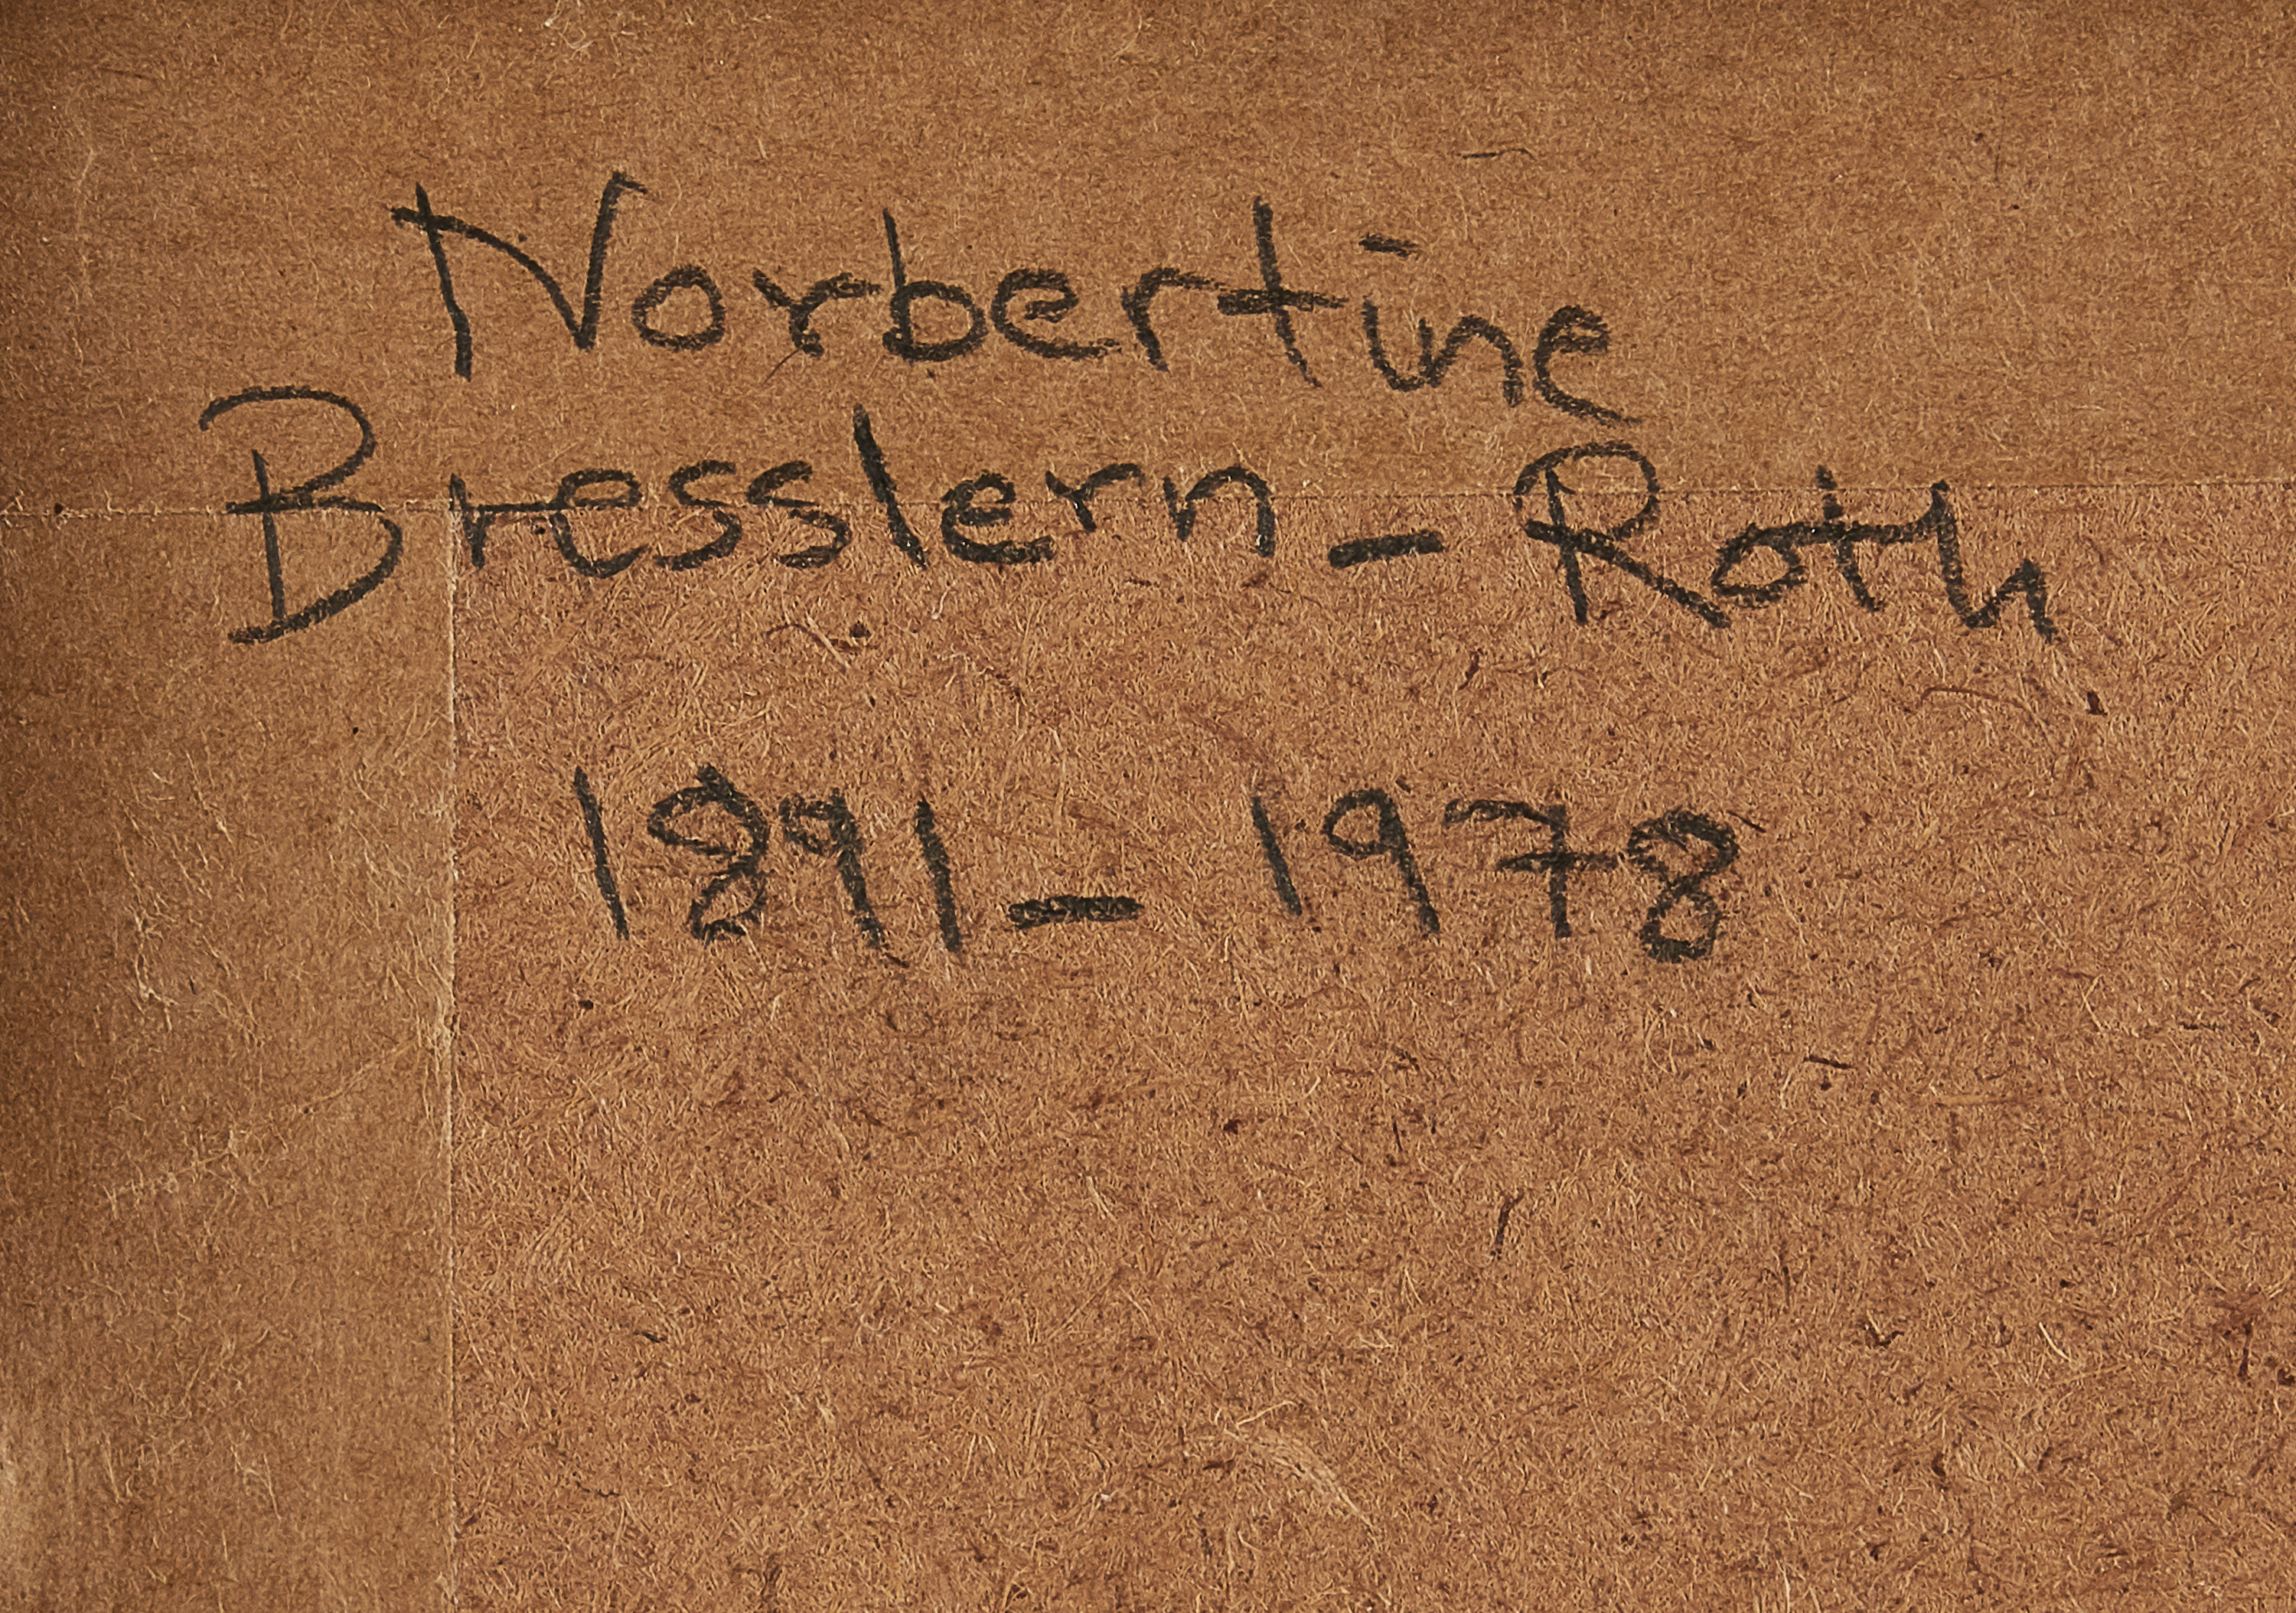 Norbertine
Bresslern - Roth
1891 - 1978